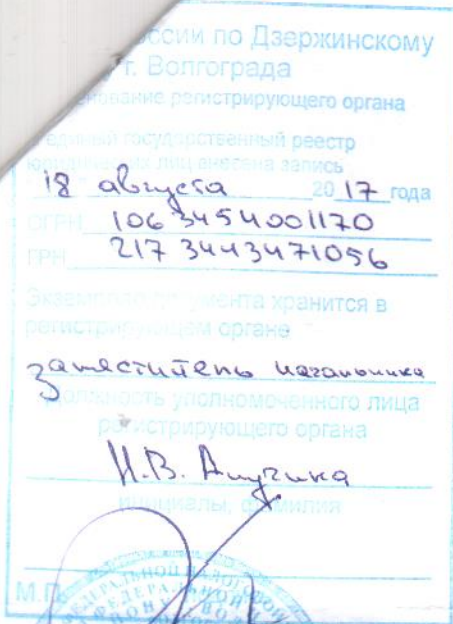 ссии по Дзержинскому
г. Волгограда
нование регистрирующего органа
единый государственный реестр
юридических лиц внесена запись
18 августа 2017 года
ОГРН 1063454001170
ГРН 2173443471056
Экземпляр документа хранится в
регистрирующем органе
заместитель начальника
Должность уполномоченного лица
регистрирующего органа
инициалы, фамилия
М.П.
ФЕДЕРАЛЬНОЙ НАЛОГОВОЙ